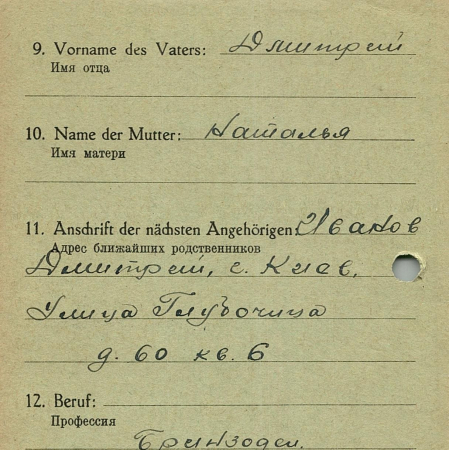 9. Vorname des Vaters: Дмитрий
Имя отца
10. Name der Mutter: Наталья
Имя матери
11. Anschrift der nächsten Angehörigen: Иванов
Адрес ближайших родственников
Дмитрий, г. Киев,
Улица Глубочица
д. 60 кв. 6
12. Beruf:
Профессия